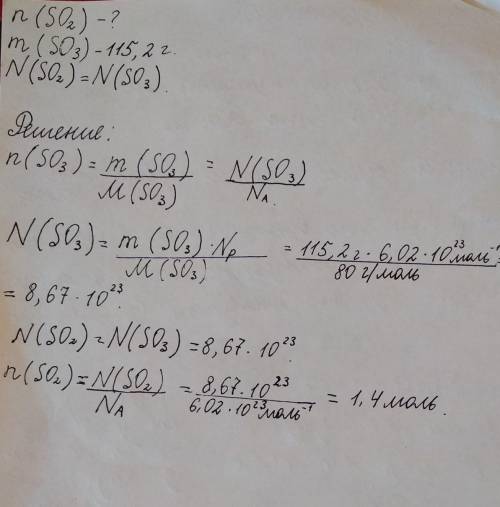 n(SO₂) - ?
m(SO₃) - 115,2 г.
N(SO₂) = N(SO₃).
Решение:
n(SO₃) = m(SO₃)/M(SO₃) = N(SO₃)/Nᴀ.
N(SO₃) = m(SO₃)·Nₚ/M(SO₃) = 115,2 г · 6,02 · 10²³ моль⁻¹/80 г/моль =
= 8,67 · 10²³.
N(SO₂) = N(SO₃) = 8,67 · 10²³.
n(SO₂) = N(SO₂)/Nᴀ = 8,67 · 10²³/6,02 · 10²³ моль⁻¹ = 1,4 моль.